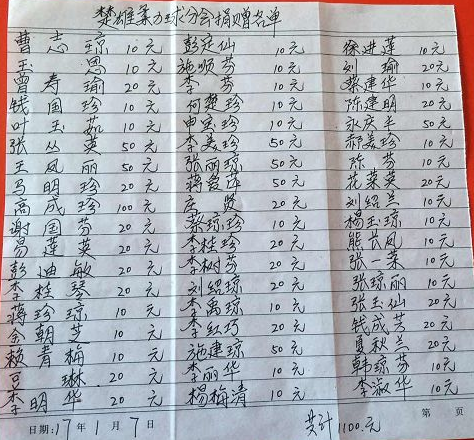 楚雄柔力球分会捐赠名单
曹志琼 10元 彭定仙 10元 徐进莲 10元
玉思 10元 施顺芬 10元 刘瑜 20元
曾寿瑜 20元 李芬 10元 蔡建华 10元
钱国珍 10元 何楚珍 10元 陈建明 20元
叶玉茹 10元 申宝珍 10元 永庆丰 50元
张丛英 50元 李美珍 50元 郝美珍 10元
王凤丽 50元 张丽琼 50元 陈芬 10元
马明珍 20元 蒋爱萍 50元 花莱英 20元
高成珍 100元 20元 刘绍兰 10元
谢国芬 20元 蔡琼珍 10元 杨玉琼 10元
易莲英 20元 李桂珍 20元 熊长凤 10元
彭迪敏 20元 李树芬 20元 张一莱 10元
李桂琴 20元 刘绍琼 20元 张琼丽 10元
蒋珍琼 10元 李禹琼 10元 张玉仙 20元
余朝芝 10元 李红巧 20元 钱成芳 20元
赖青梅 10元 施建琼 50元 夏秋兰 20元
琳 20元 李丽华 10元 韩琼芬 10元
李明华 20元 杨梅清 10元 李淑华 10元
日期:17年1月7日 共计1100.元 第 页